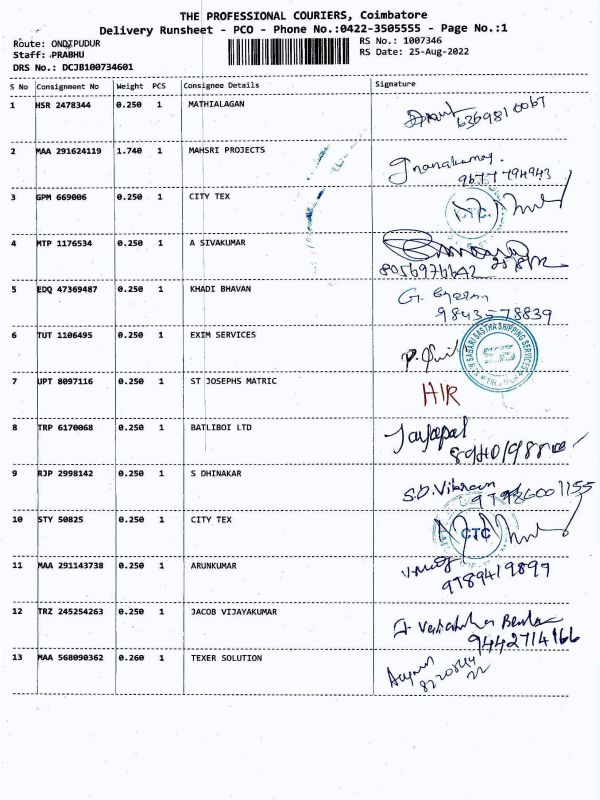 THE PROFESSIONAL COURIERS, Coimbatore
Delivery Runsheet - PCO - Phone No.:0422-3505555 - Page No.:1
Route: ONDIPUDUR
RS No.: 1007346
Staff: PRABHU
RS Date: 25-Aug-2022
DRS No.: DCJB100734601
S No Consignment No Weight PCS Consignee Details Signature
1 HSR 2478344 0.250 1 MATHIALAGAN
6369810067
2 MAA 291624119 1.740 1 MAHSRI PROJECTS
Jnanakumay.
9677794943
3 GPM 669006 0.250 1 CITY TEX
CTC
4 MTP 1176534 0.250 1 A SIVAKUMAR
8056976642
5 EDQ 47369487 0.250 1 KHADI BHAVAN
9843578839
6 TUT 1106495 0.250 1 EXIM SERVICES
SABARI SASTHA SHIPPING SERVICES
7 UPT 8097116 0.250 1 ST JOSEPHS MATRIC
HIR
8 TRP 6170068 0.250 1 BATLIBOI LTD
Jayapal
9 RJP 2998142 0.250 1 S DHINAKAR
S.D. Vikram
10 STY 50825 0.250 1 CITY TEX
CTC
11 MAA 291143738 0.250 1 ARUNKUMAR
9789419899
12 TRZ 245254263 0.250 1 JACOB VIJAYAKUMAR
9442714166
13 MAA 568090362 0.260 1 TEXER SOLUTION